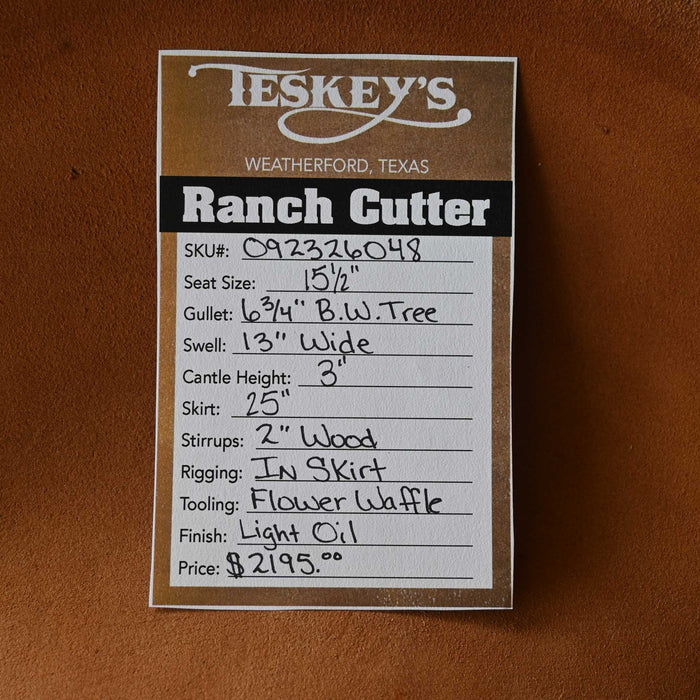 TESKEY'S
WEATHERFORD, TEXAS
Ranch Cutter
SKU#: 092326048
Seat Size: 15 1/2"
Gullet: 6 3/4" B.W. Tree
Swell: 13" Wide
Cantle Height: 3"
Skirt: 25"
Stirrups: 2" Wood
Rigging: In Skirt
Tooling: Flower Waffle
Finish: Light Oil
Price: $2195.00